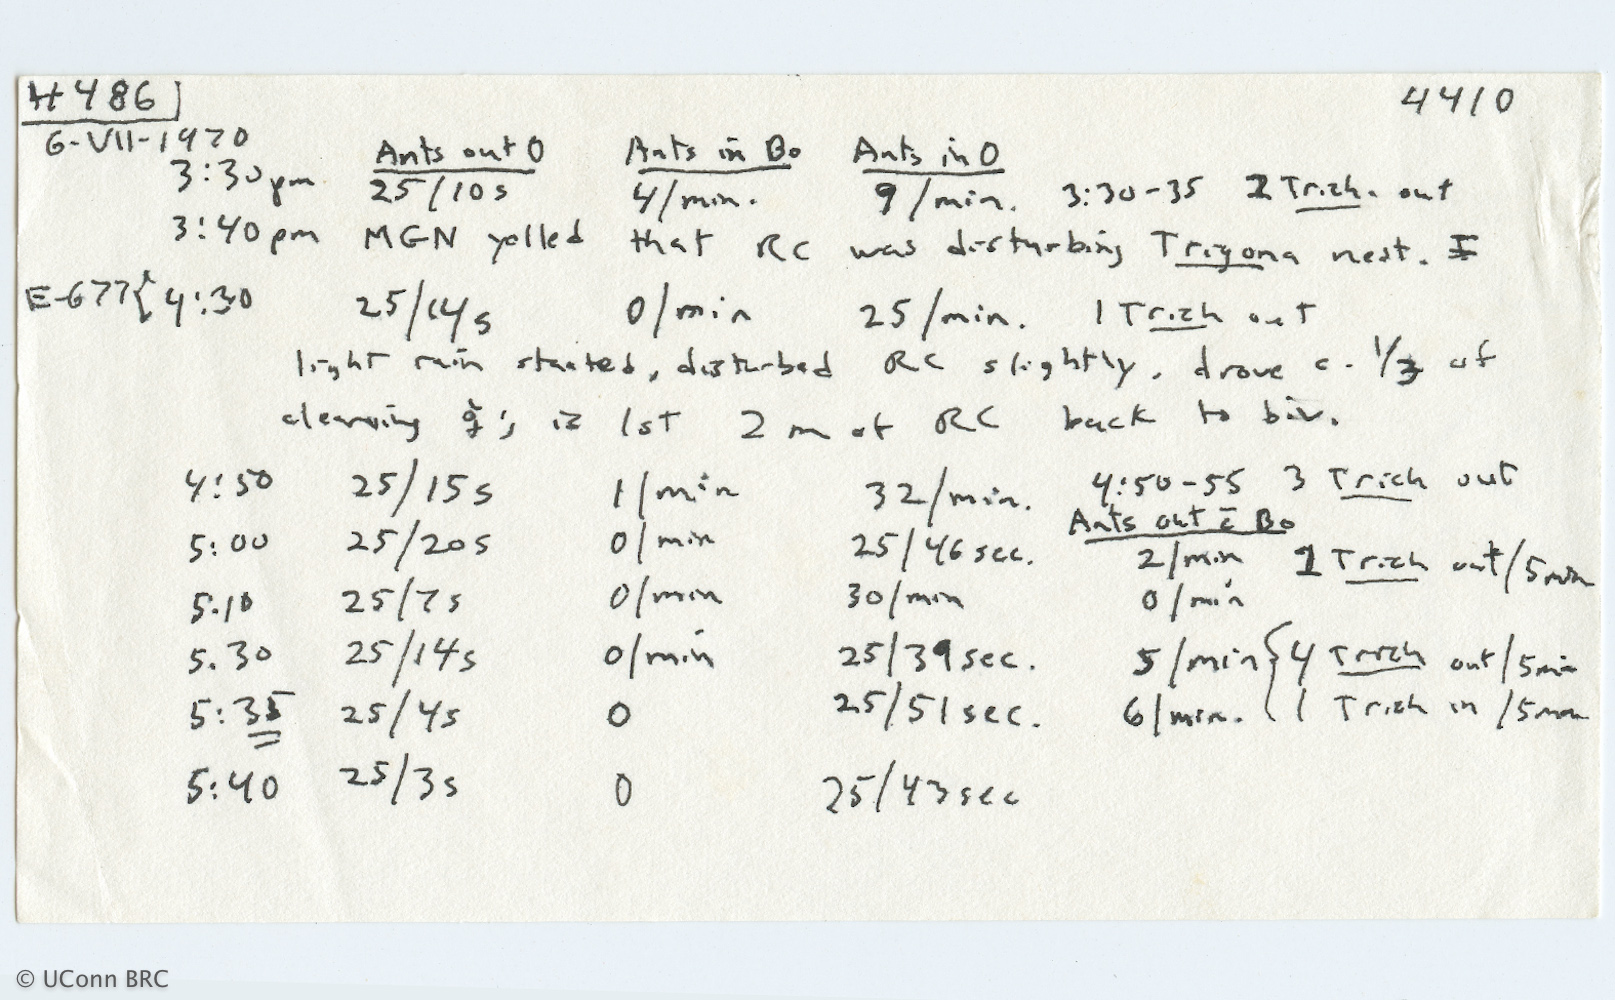 H486 4410
6-VII-1970
Ants out 0 Ants in Bo Ants in 0
3:30pm 25/10s 4/min. 9/min. 3:30-35 2 Trich. out
3:40pm MGN yelled that RC was disturbing Trigona nest. I
E-677{ 4:30 25/14s 0/min 25/min. 1 Trich out
light rain started, disturbed RC slightly, drove c. 1/3 of
cleaning ☿'s in 1st 2 m of RC back to biv.
4:50 25/15s 1/min 32/min. 4:50-55 3 Trich out
Ants out c̄ Bo
5:00 25/20s 0/min 25/46 sec. 2/min 1 Trich out/5min
5.10 25/7s 0/min 30/min 0/min
5.30 25/14s 0/min 25/39sec. 5/min { 4 Trich out/5min
5:35 25/4s 0 25/51sec. 6/min. 1 Trich in /5min
5:40 25/3s 0 25/43sec
© UConn BRC